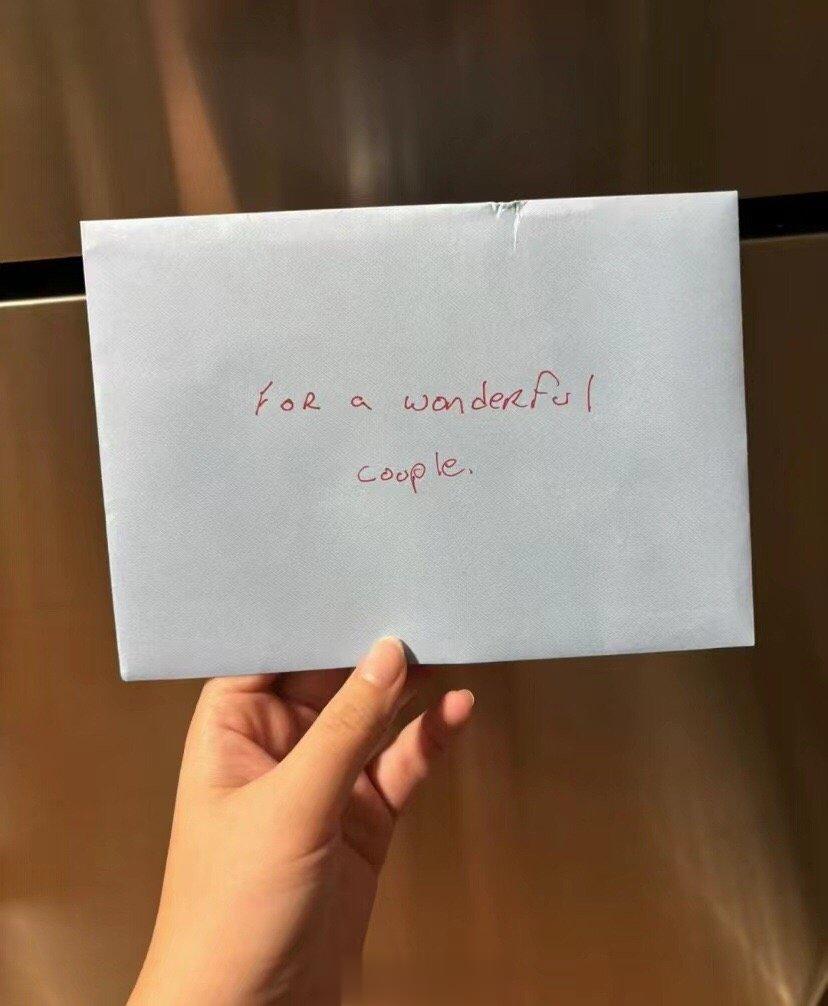 FOR a wonderful
couple.